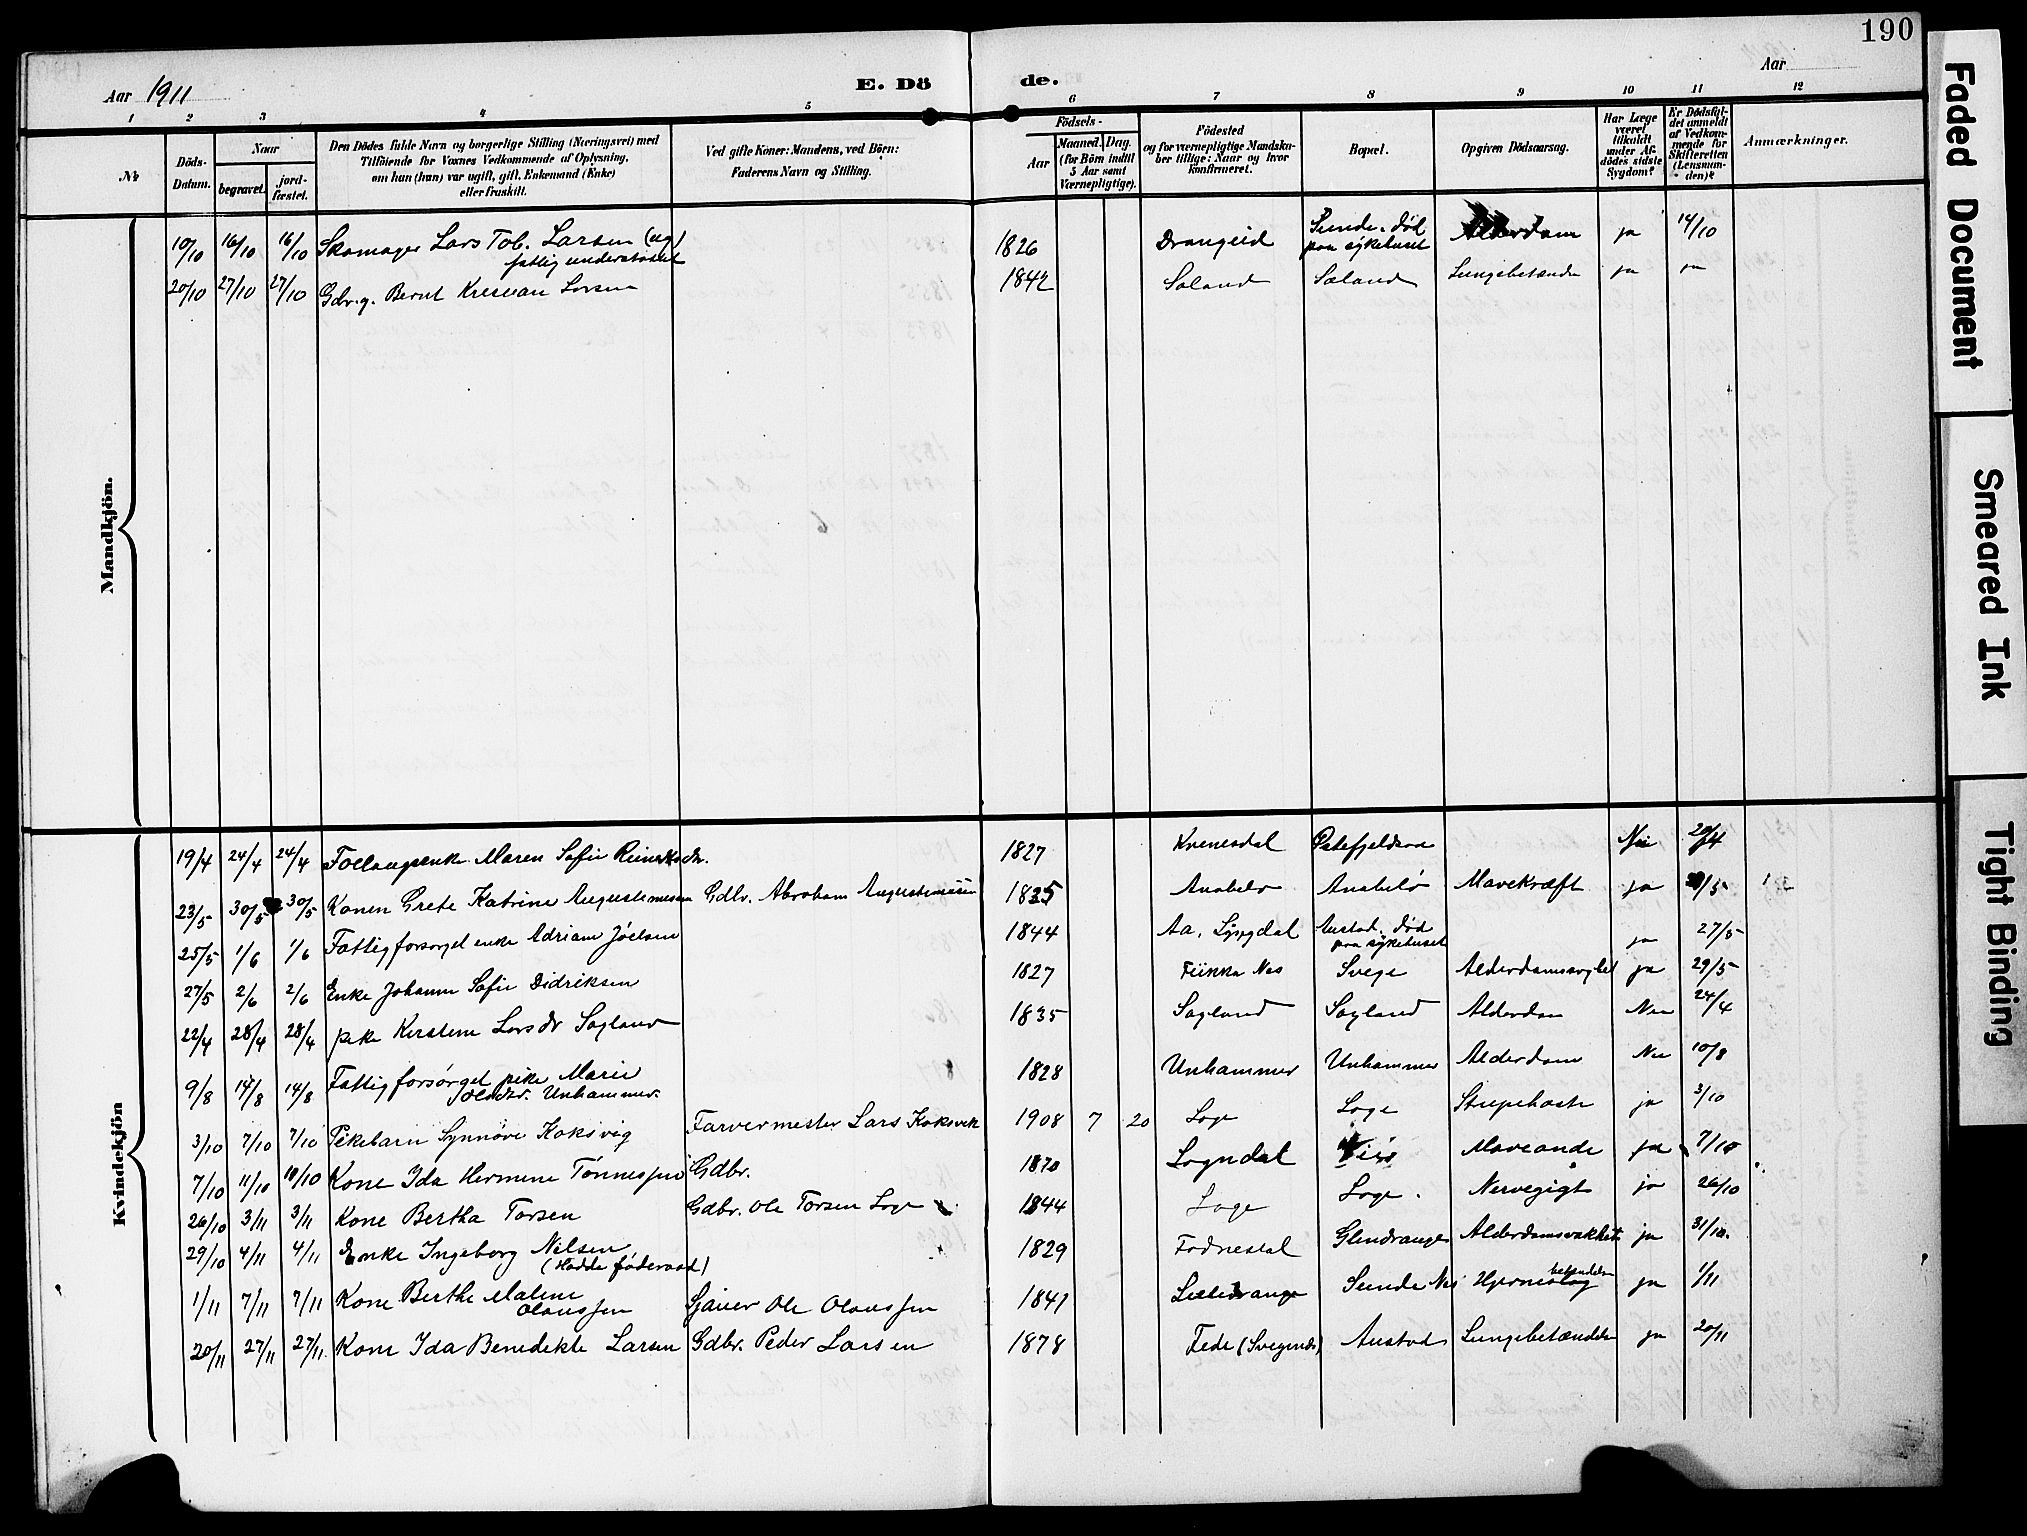 190
Aar 1911
E. Döde.
Aar
1 2 3 4 5 6 7 8 9 10 11 12
No
Döds-Datum.
Naar
begravet.
jord-fæstet.
Den Dödes fulde Navn og borgerlige Stilling (Næringsvei) med
Tilföiende for Voxnes Vedkommende af Oplysning,
om han (hun) var ugift, gift, Enkemand (Enke)
eller fraskilt.
Ved gifte Koner: Mandens, ved Börn:
Faderens Navn og Stilling.
Födsels-
Aar
Maaned. Dag.
(for Börn indtil
5 Aar samt
Værnepligtige).
Födested
og for værnepligtige Mandska-
ber tillige: Naar og hvor
konfirmeret.
Bopæl.
Opgiven Dödsaarsag.
Har Læge
været
tilkaldt
under Af-
dödes sidste
Sygdom?
Er Dödsfal-
det anmeldt
af Vedkom-
mende for
Skifteretten
(Lensman-
den)?
Anmærkninger.
Mandkjön.
10/10 16/10 16/10 Skomager Lars Tob. Larsen (ug) 1826 Drangeid Sunde. død Alderdom ja 14/10
fattigunderstøttet paa sykehuset
20/10 27/10 27/10 Gbr. g. Bernt Larsen 1842 Saland Saland Lungebetændn ja ja
Kvindekjön
19/4 24/4 24/4 Maren Sofie 1827 Kvinesdal Nei 20/4
23/5 30/5 30/5 Konen Grete Katrine Augustinussen Gdbr. Abraham Augustinussen 1835 Anabelø Anabelø Mavekræft ja /5
25/5 1/6 1/6 Fattigforsørget enke Adriane Jöelsen 1844 Aa, Lyngdal Austad. død ja 27/5
paa sykehuset
27/5 2/6 2/6 Enke Johanne Sofie Didriksen 1827 Nes Svege ja 29/5
22/4 28/4 28/4 pike Kirstine Larsdr Sogland 1835 Sogland Sogland Alderdom Nei 24/4
9/8 14/8 14/8 Fattigforsørget pike Marie 1828 Unhammer Unhammer Alderdom Nei 10/8
Unhammer.
3/10 7/10 7/10 Pikebarn Synnöve Koksvig Farvermester Lars Koksvik 1908 7 20 Loge Loge Strupehoste ja 3/10
7/10 11/10 11/10 Kone Ida Hermine Tönnessen Gdbr. 1870 Logndal ja 7/10
26/10 3/11 3/11 Kone Bertha Torsen Gdbr. Ole Torsen Loge 1844 Loge Loge. Nervegigt ja 26/10
29/10 4/11 4/11 Enke Ingeborg Nilsen 1829 Fodnestøl Glendrange Alderdomsvakhet ja 31/10.
(Hadde föderaad)
1/11 7/11 7/11 Kone Berthe Maline Sjauer Ole Olaussen 1841 Lilledrange Sunde Nes ja 1/11
Olaussen
20/11 27/11 27/11. Kone Ida Benedikte Larsen Gdbr. Peder Larsen 1878 Fede (Svegende) Austad Lungebetændelse ja 20/11
Faded Document
Smeared Ink
Tight Binding